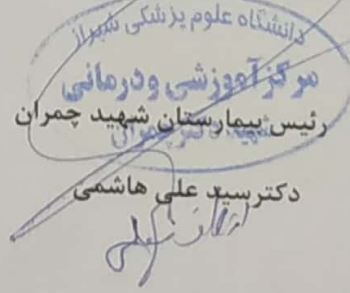 دانشگاه علوم پزشکی شیراز
مرکز آموزشی و درمانی
رئیس بیمارستان شهید چمران
شهید دکتر چمران
دکتر سید علی هاشمی